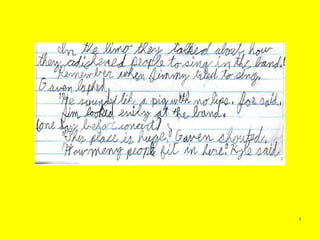 In the limo they talked about how
they adishened people to sing in the band!
"Remember when Jimmy tried to sing.
Gaven laphed.
"He sounded like a pig with no lips. Joe said.
Jim looked at the band.
(one day before concert)
"This place is huge!" Gaven shouted.
"How meny people fit in here." Kyle said.